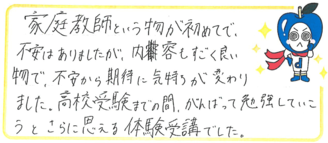 家庭教師という物が初めてで、
不安はありましたが、内容もすごく良い
物で、不安から期待に気持ちが変わり
ました。高校受験までの間、がんばって勉強していこ
うとさらに思える体験受講でした。